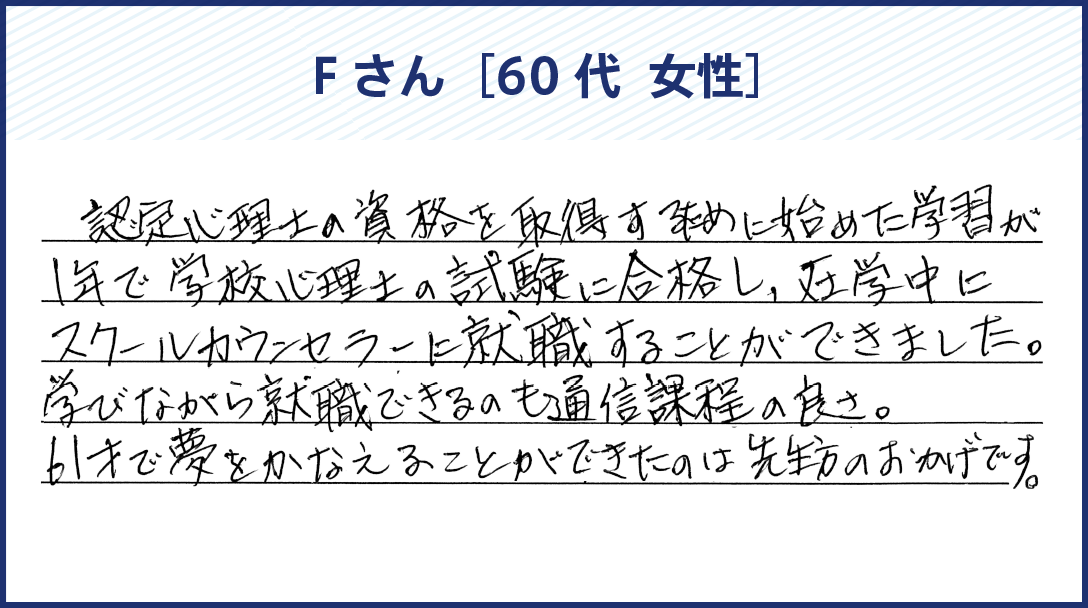 Fさん［60代 女性］
認定心理士の資格を取得するために始めた学習が
1年で学校心理士の試験に合格し，在学中に
スクールカウンセラーに就職することができました。
学びながら就職できるのも通信課程の良さ。
61才で夢をかなえることができたのは先生方のおかげです。